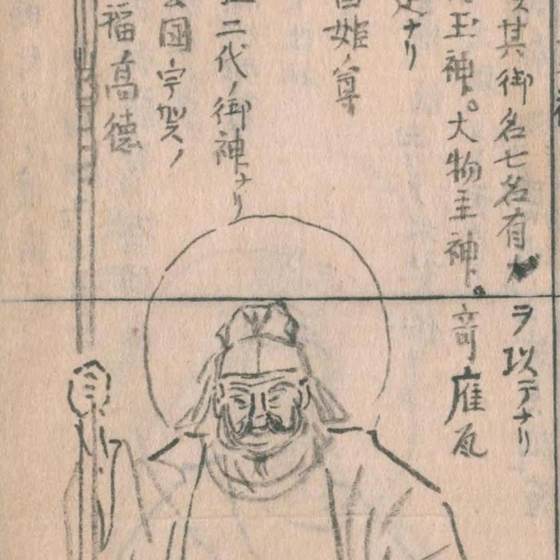 其御名七名有
ヲ以テナリ
玉神。大物主神。奇
ナリ
姫ノ尊
二代ノ御神ナリ
國宇賀ノ
福高徳